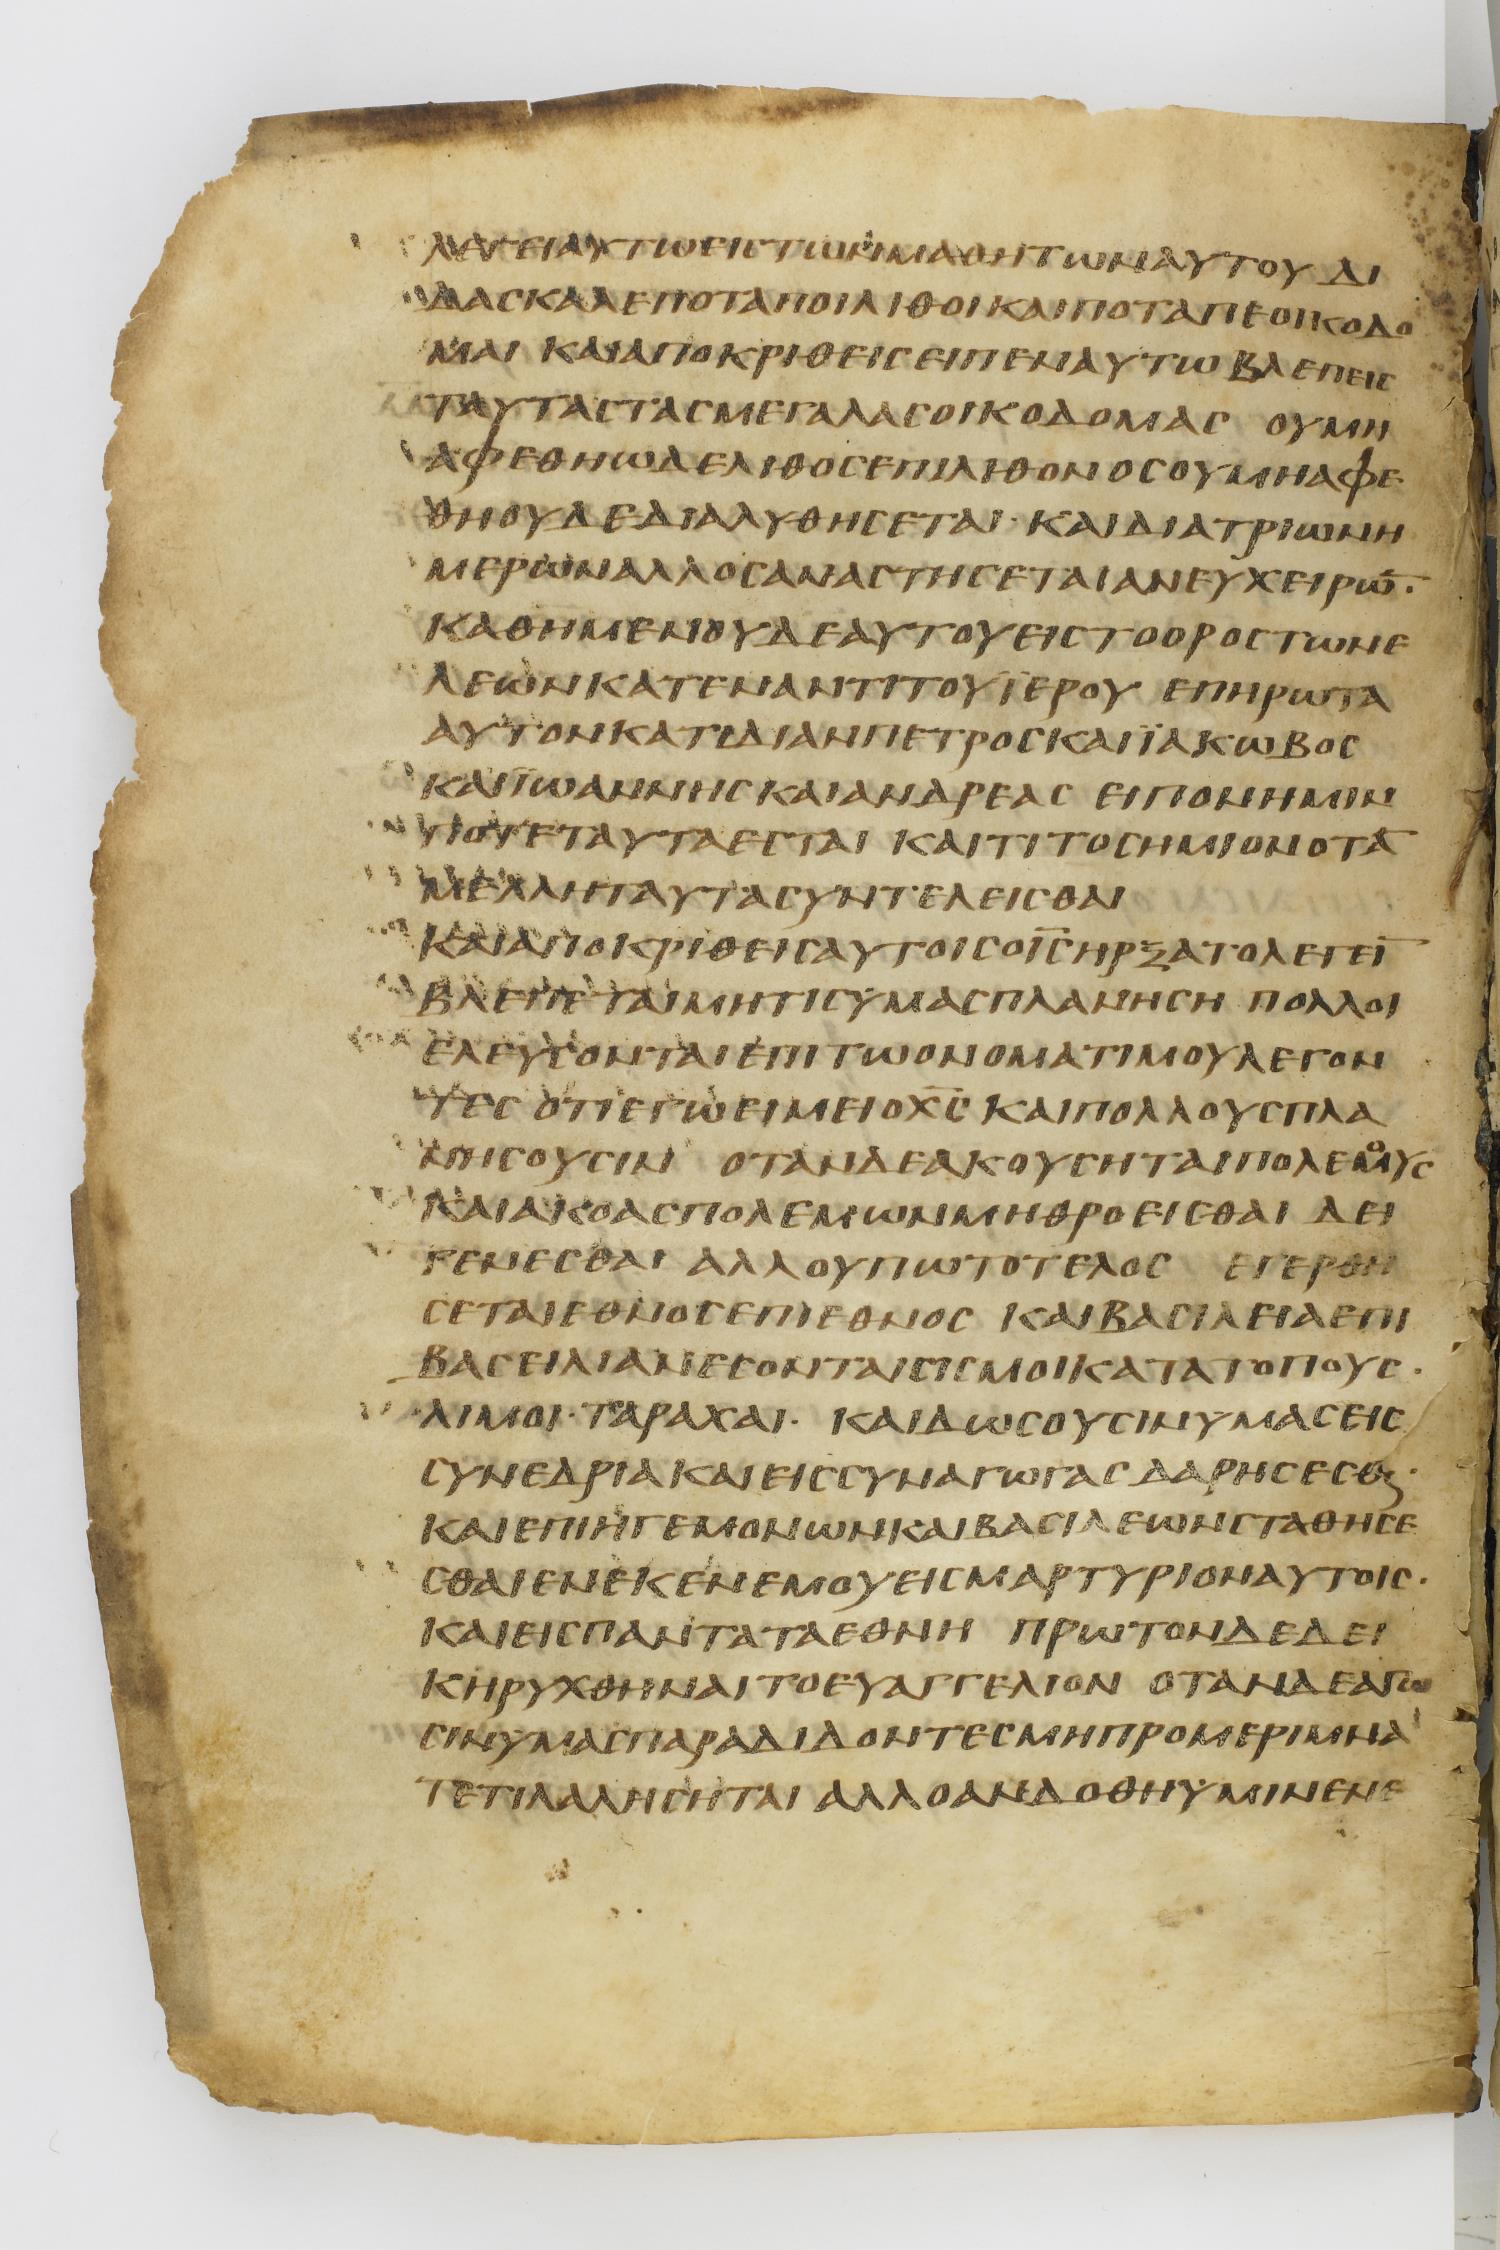 ΛΕΓΕΙΑΥΤΩΕΙΣΤΩΝΜΑΘΗΤΩΝΑΥΤΟΥ ΔΙ
ΔΑΣΚΑΛΕΠΟΤΑΠΟΙΛΙΘΟΙΚΑΙΠΟΤΑΠΕΟΙΚΟΔΟ
ΜΑΙ ΚΑΙΑΠΟΚΡΙΘΕΙΣΕΙΠΕΝΑΥΤΩ ΒΛΕΠΕΙΣ
ΤΑΥΤΑΣΤΑΣΜΕΓΑΛΑΣΟΙΚΟΔΟΜΑΣ ΟΥΜΗ
ΑΦΕΘΗΩΔΕΛΙΘΟΣΕΠΙΛΙΘΟΝΟΣΟΥΜΗΑΦΕ
ΘΗΟΥΔΕΔΙΑΛΥΘΗΣΕΤΑΙ· ΚΑΙΔΙΑΤΡΙΩΝΗ
ΜΕΡΩΝΑΛΛΟΣΑΝΑΣΤΗΣΕΤΑΙΑΝΕΥΧΕΙΡΩ̅·
ΚΑΘΗΜΕΝΟΥΔΕΑΥΤΟΥΕΙΣΤΟΟΡΟΣΤΩΝΕ
ΛΕΩΝΚΑΤΕΝΑΝΤΙΤΟΥΪΕΡΟΥ ΕΠΗΡΩΤΑ
ΑΥΤΟΝΚΑΤΙΔΙΑΝΠΕΤΡΟΣΚΑΙΪΑΚΩΒΟΣ
ΚΑΙΪΩΑΝΝΗΣΚΑΙΑΝΔΡΕΑΣ ΕΙΠΟΝΗΜΙΝ
ΠΟΤΕΤΑΥΤΑΕΣΤΑΙ ΚΑΙΤΙΤΟΣΗΜΙΟΝΟΤΑ̅
ΜΕΛΛΗΤΑΥΤΑΣΥΝΤΕΛΕΙΣΘΑΙ
ΚΑΙΑΠΟΚΡΙΘΕΙΣΑΥΤΟΙΣΟΙ̅Σ̅ΗΡΞΑΤΟΛΕΓΕΙ̅
ΒΛΕΠΕΤΑΙΜΗΤΙΣΥΜΑΣΠΛΑΝΗΣΗ ΠΟΛΛΟΙ
ΕΛΕΥΣΟΝΤΑΙΕΠΙΤΩΟΝΟΜΑΤΙΜΟΥΛΕΓΟΝ
ΤΕΣ ΟΤΙΕΓΩΕΙΜΕΙΟΧ̅Σ̅ ΚΑΙΠΟΛΛΟΥΣΠΛΑ
ΝΗΣΟΥΣΙΝ ΟΤΑΝΔΕΑΚΟΥΣΗΤΑΙΠΟΛΕΜΟΥΣ
ΚΑΙΑΚΟΑΣΠΟΛΕΜΩΝΜΗΘΡΟΕΙΣΘΑΙ ΔΕΙ
ΓΕΝΕΣΘΑΙ ΑΛΛΟΥΠΩΤΟΤΕΛΟΣ ΕΓΕΡΘΗ
ΣΕΤΑΙΕΘΝΟΣΕΠΙΕΘΝΟΣ ΚΑΙΒΑΣΙΛΕΙΑΕΠΙ
ΒΑΣΕΙΛΙΑΝΕΣΟΝΤΑΙΣΙΣΜΟΙΚΑΤΑΤΟΠΟΥΣ·
ΛΙΜΟΙ· ΤΑΡΑΧΑΙ· ΚΑΙΔΩΣΟΥΣΙΝΥΜΑΣΕΙΣ
ΣΥΝΕΔΡΙΑΚΑΙΕΙΣΣΥΝΑΓΩΓΑΣΔΑΡΗΣΕΣΘϗ·
ΚΑΙΕΠΙΗΓΕΜΟΝΩΝΚΑΙΒΑΣΙΛΕΩΝΣΤΑΘΗΣΕ
ΣΘΑΙΕΝΕΚΕΝΕΜΟΥΕΙΣΜΑΡΤΥΡΙΟΝΑΥΤΟΙΣ·
ΚΑΙΕΙΣΠΑΝΤΑΤΑΕΘΝΗ ΠΡΩΤΟΝΔΕΔΕΙ
ΚΗΡΥΧΘΗΝΑΙΤΟΕΥΑΓΓΕΛΙΟΝ ΟΤΑΝΔΕΑΓΩ
ΣΙΝΥΜΑΣΠΑΡΑΔΙΔΟΝΤΕΣΜΗΠΡΟΜΕΡΙΜΝΑ
ΤΕΤΙΛΑΛΗΣΗΤΑΙ ΑΛΛΟΑΝΔΟΘΗΥΜΙΝΕΝΕ